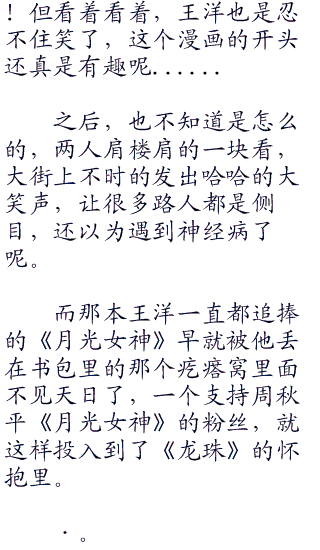 ！但看着看着，王洋也是忍
不住笑了，这个漫画的开头
还真是有趣呢......
之后，也不知道是怎么
的，两人肩楼肩的一块看，
大街上不时的发出哈哈的大
笑声，让很多路人都是侧
目，还以为遇到神经病了
呢。
而那本王洋一直都追捧
的《月光女神》早就被他丢
在书包里的那个疙瘩窝里面
不见天日了，一个支持周秋
平《月光女神》的粉丝，就
这样投入到了《龙珠》的怀
抱里。
·。